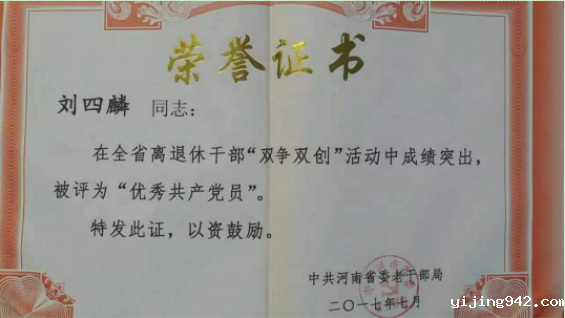 荣誉证书
刘四麟 同志：
在全省离退休干部“双争双创”活动中成绩突出，
被评为“优秀共产党员”。
特发此证，以资鼓励。
中共河南省委老干部局
二〇一七年七月
yijing942.com